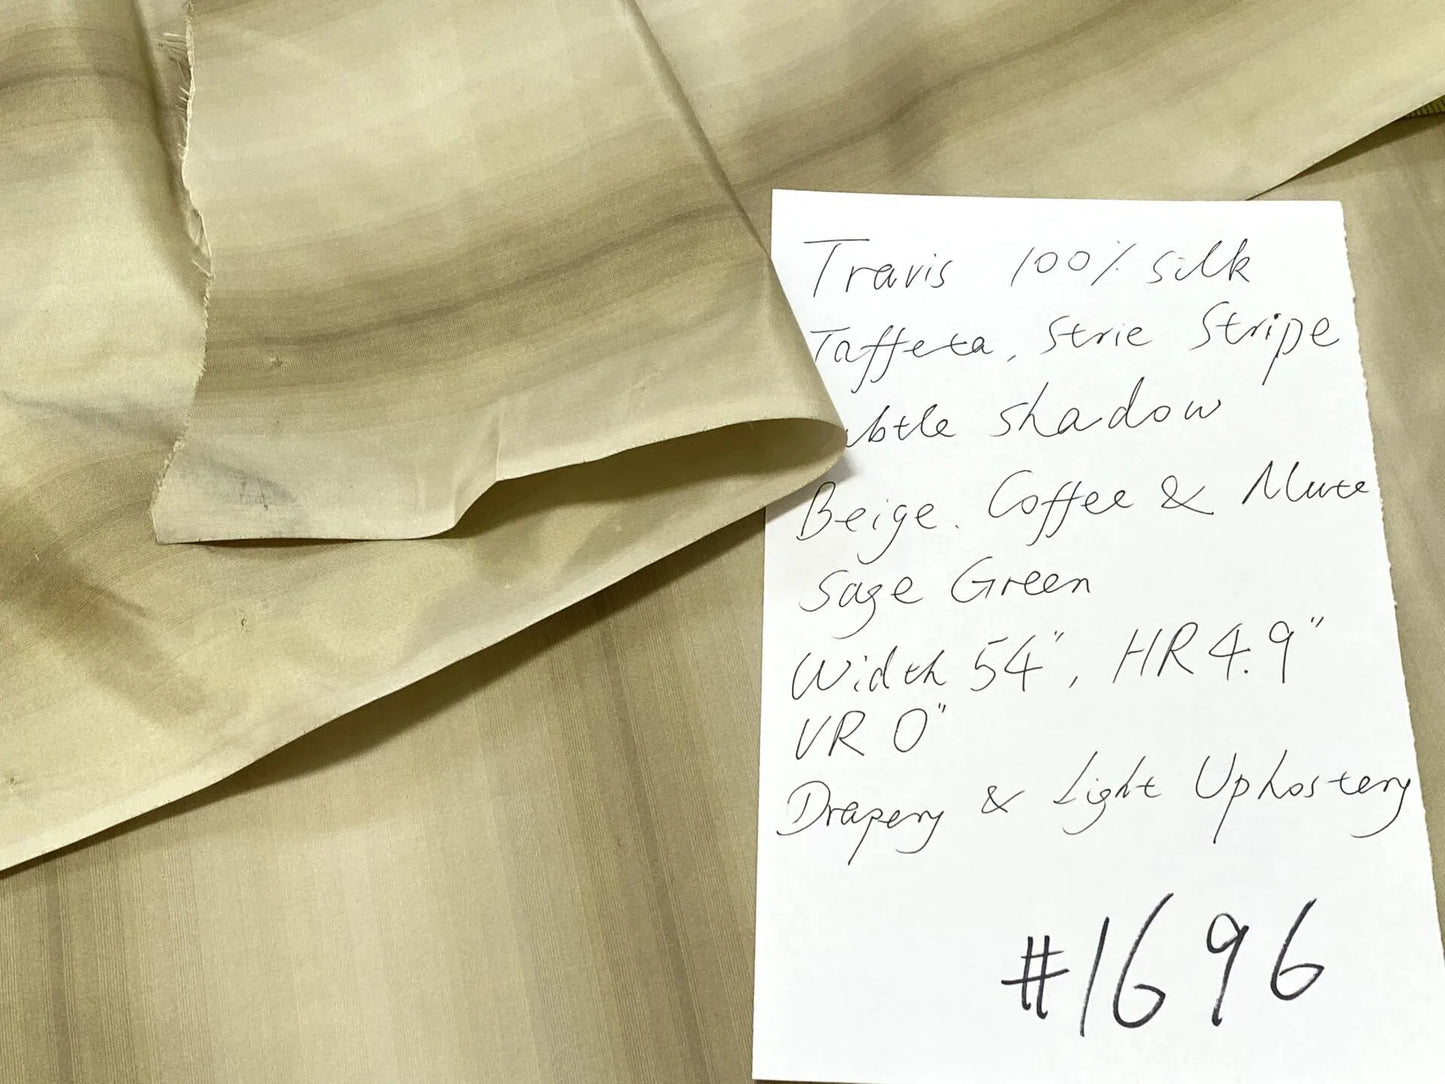 Travis 100% Silk
Taffeta, Strie Stripe
ubtle Shadow
Beige. Coffee & Mute
Sage Green
Width 54", HR 4.9"
VR 0"
Drapery & Light Uphostery
#1696